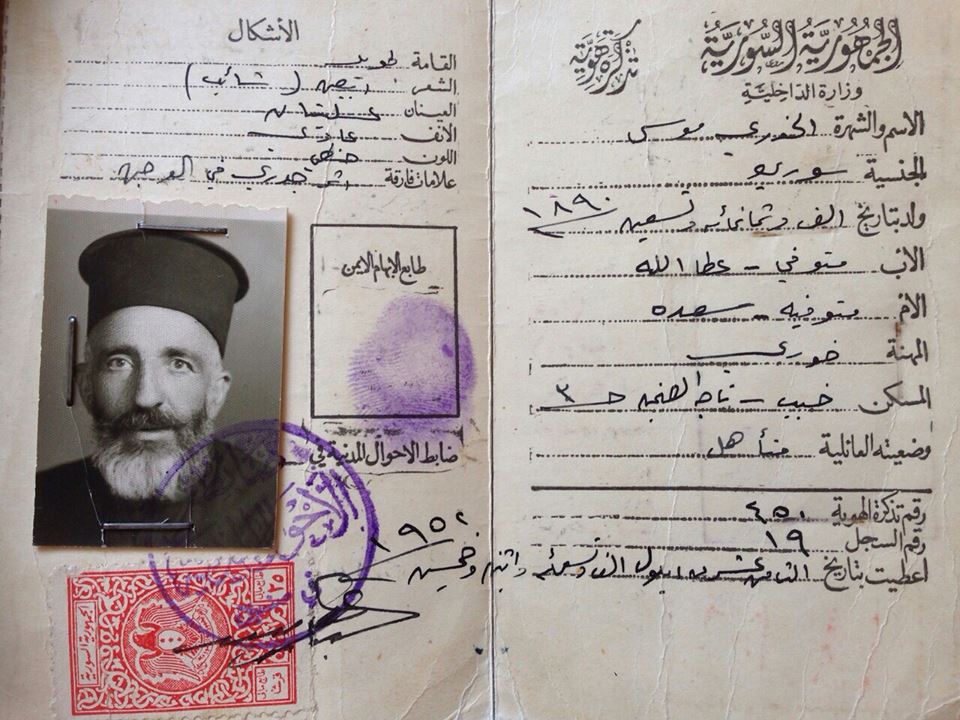 الجمهورية السورية
تذكرة هوية
وزارة الداخلية
الاسم والشهرة الخوري موسى
الجنسية سوري
ولد بتاريخ الف وثمانمائة وتسعين ١٨٩٠
الأب متوفي - عطا الله
الام متوفيه - سعده
المهنة خوري
المسكن خبب - خ ٣
وضعيته العائلية متأهل
رقم تذكرة الهوية ٤٥١
رقم السجل ١٩
اعطيت بتاريخ الثامن عشر من ايلول الف وتسعمائة واثنين وخمسين
١٩٥٢
الأشكال
القامة طويل
الشعر ابيض (شائب)
العينان عسليتان
الانف عادي
اللون حنطي
علامات فارقة اثر جدري في الوجه
طابع الابهام الايمن
ضابط الاحوال المدنية في
الجمهورية السورية